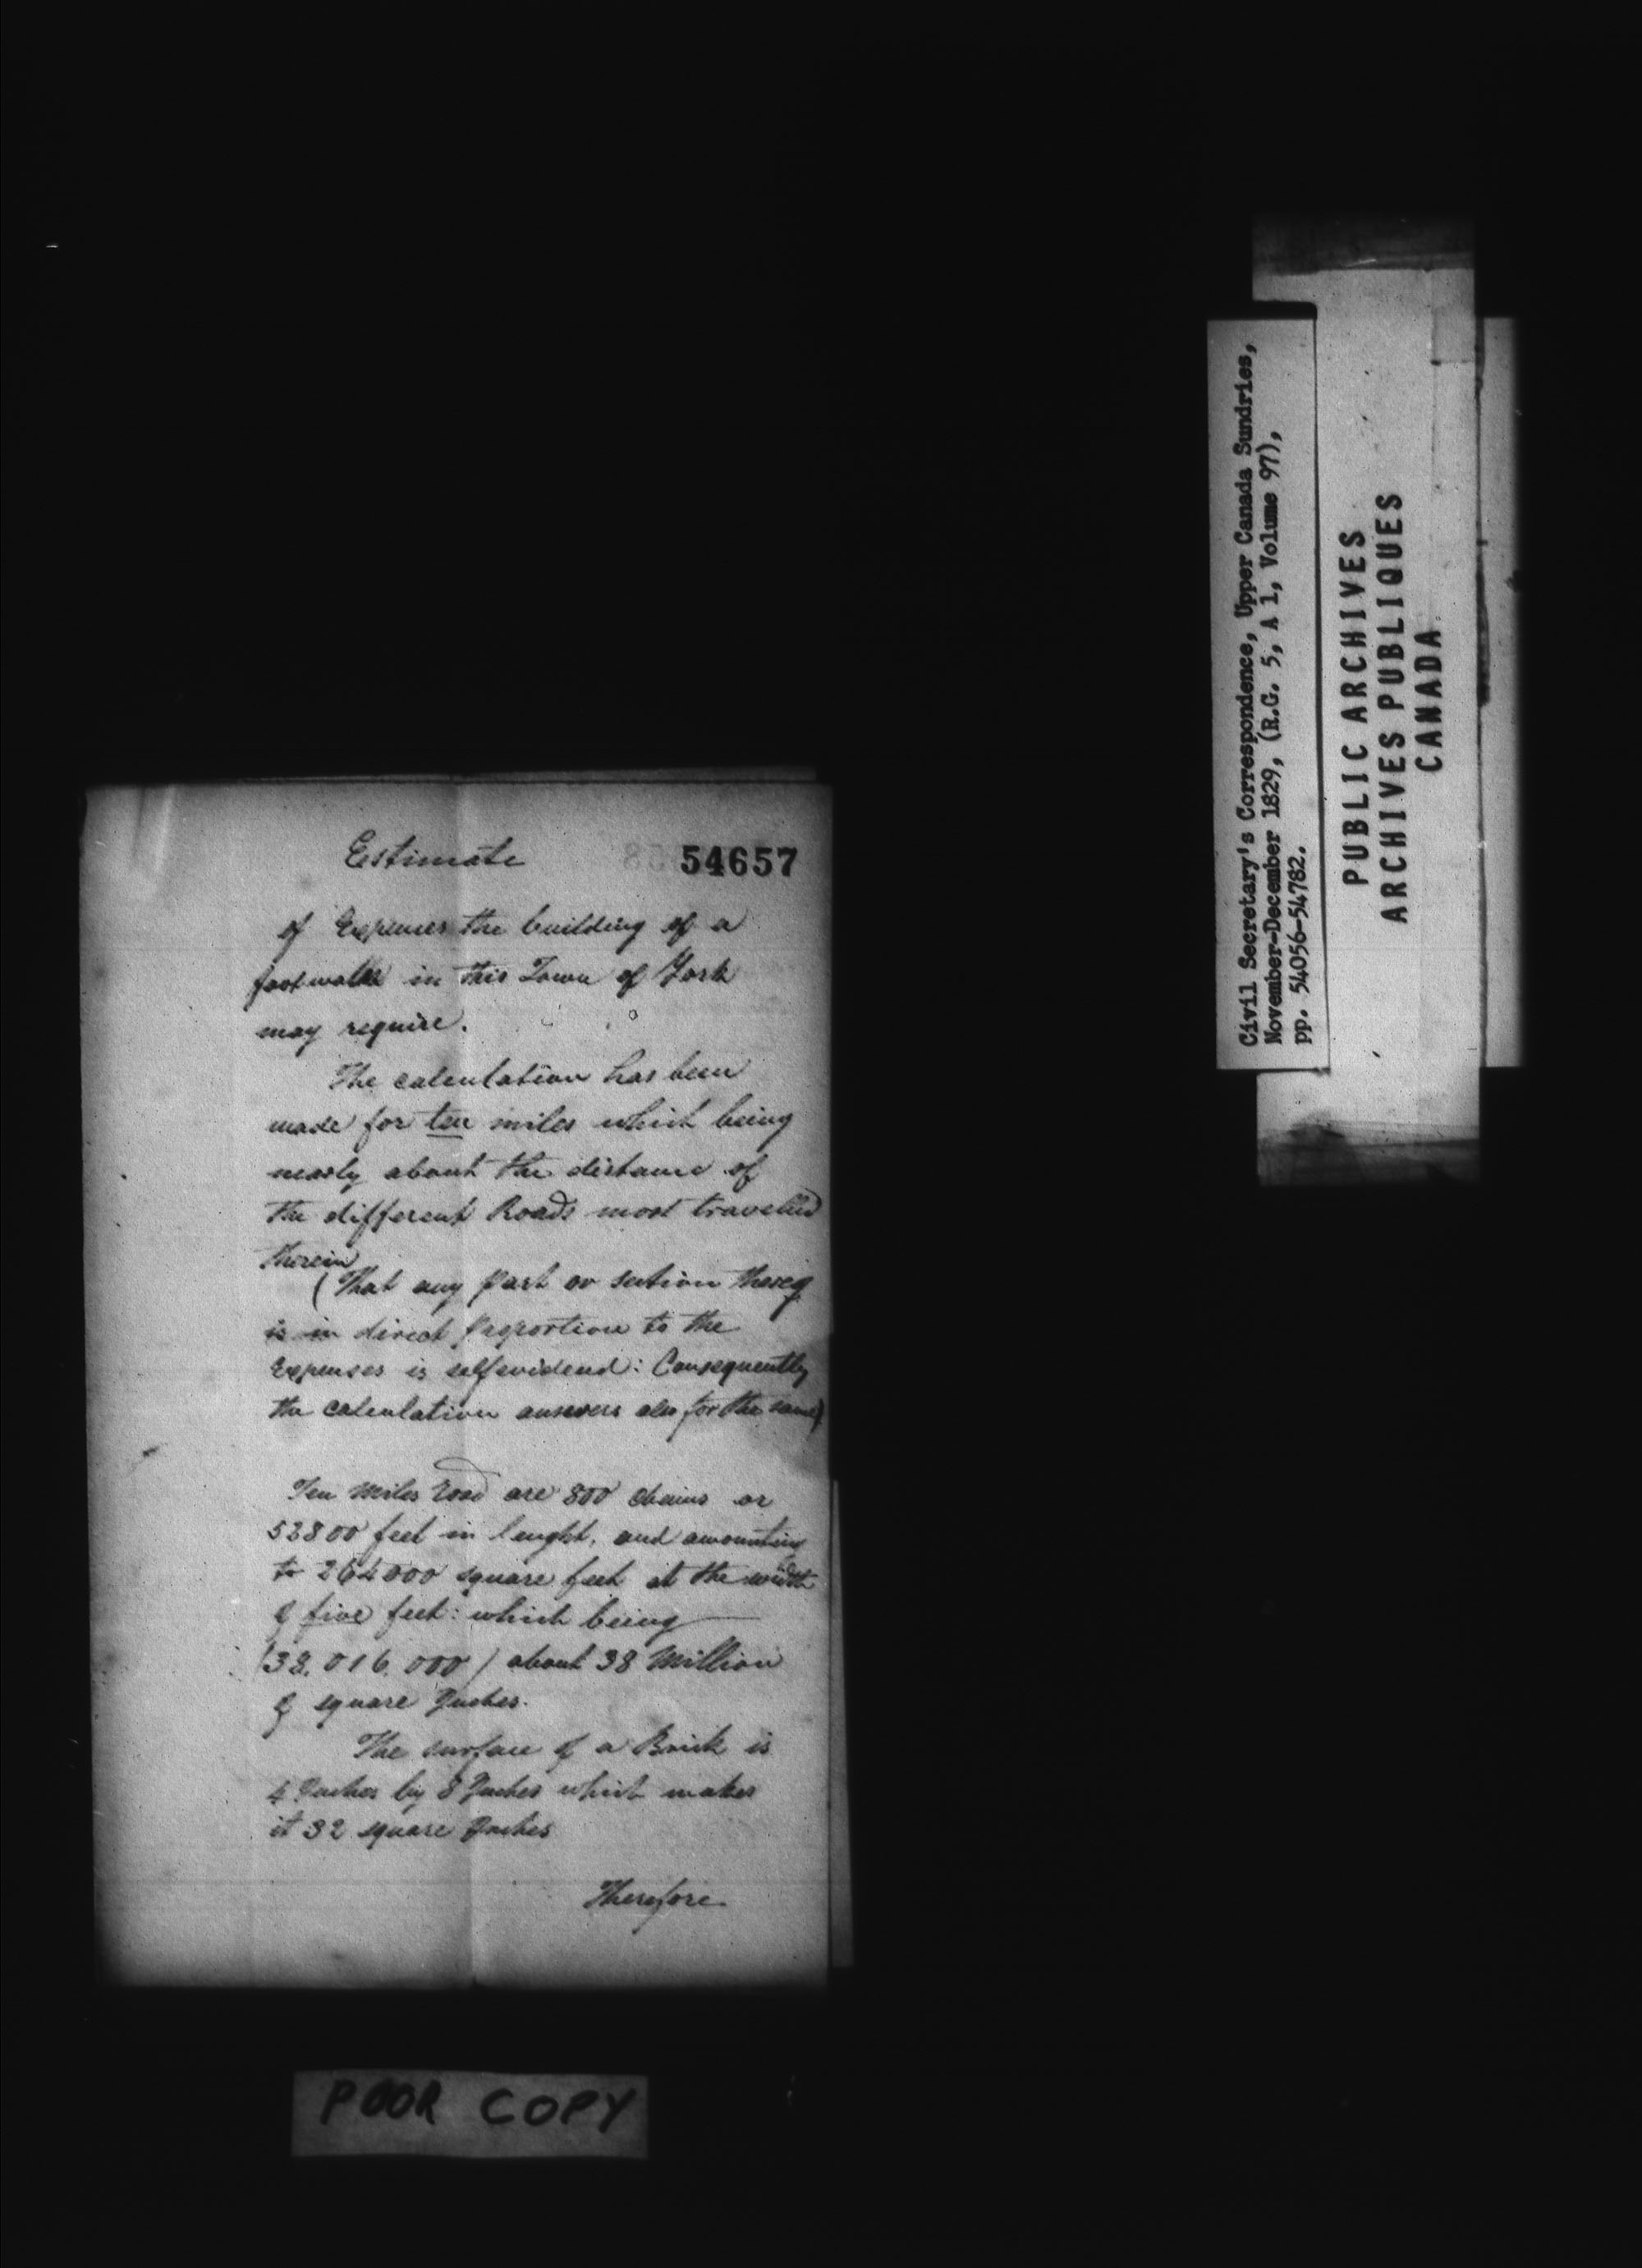 Estimate
54657
of Expenses the building of a
footwalk in this Town of York
may require.
The calculation has been
made for ten miles which being
nearly about the distance of
the different Roads most travelled
therein
(That any part or section thereof
is in direct proportion to the
Expenses is selfevidend: Consequently
the calculation answers also for the same)
Ten miles road are 800 chains or
52800 feet in lenght, and amounting
to 264000 square feet at the width
of five feet: which being
(38,016,000) about 38 Million
of square Inches.
The surface of a Brick is
4 Inches by 8 Inches which makes
it 32 square Inches
Therefore
POOR COPY
Civil Secretary's Correspondence, Upper Canada Sundries,
November-December 1829, (R.G. 5, A 1, Volume 97),
pp. 54056-54782.
PUBLIC ARCHIVES
ARCHIVES PUBLIQUES
CANADA